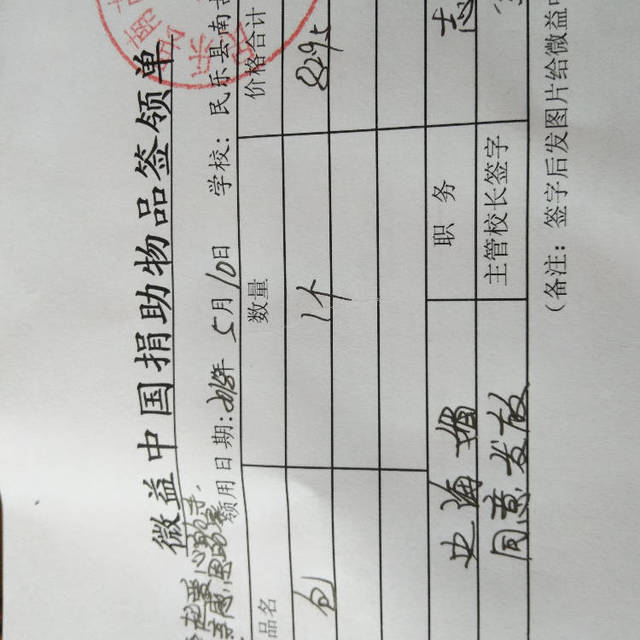 微益中国捐助物品签领单
领用日期:2018年5月10日 学校：民乐县南古
品名 数量 价格合计
包 1个 829.5
史海瑶 职务 志
同意发放 主管校长签字
（备注：签字后发图片给微益中